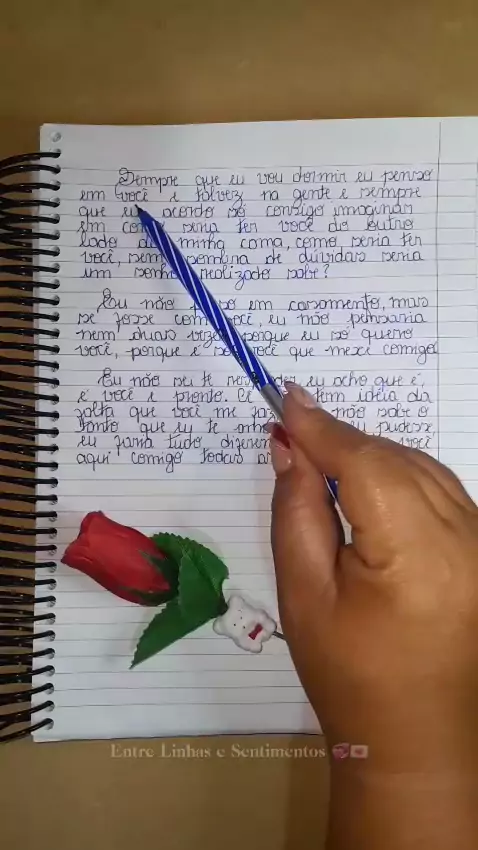 Sempre que eu vou dormir eu penso
em você e talvez na gente e sempre
que eu acordo só consigo imaginar
em como seria ter você do outro
lado da minha cama, como seria ter
você, sem sombra de dúvidas seria
um sonho realizado sabe?
Eu não penso em casamento, mas
se fosse com você, eu não pensaria
nem duas vezes porque eu só quero
você, porque é só você que mexe comigo
Eu não sei te responder, eu acho que é,
é você e pronto. Cê não tem idéia da
falta que você me faz não sabe o
tanto que eu te se eu pudesse,
eu faria tudo, você
aqui comigo todas as
Entre Linhas e Sentimentos